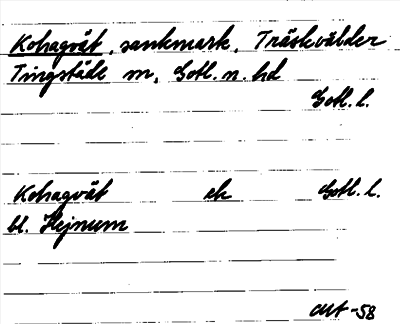 Kohagvät, sankmark, Träskvälder
Tingstäde sn, Gotl. n. hd
Gotl. l.
Kohagvät ek Gotl. l.
bl. Hejnum
-58